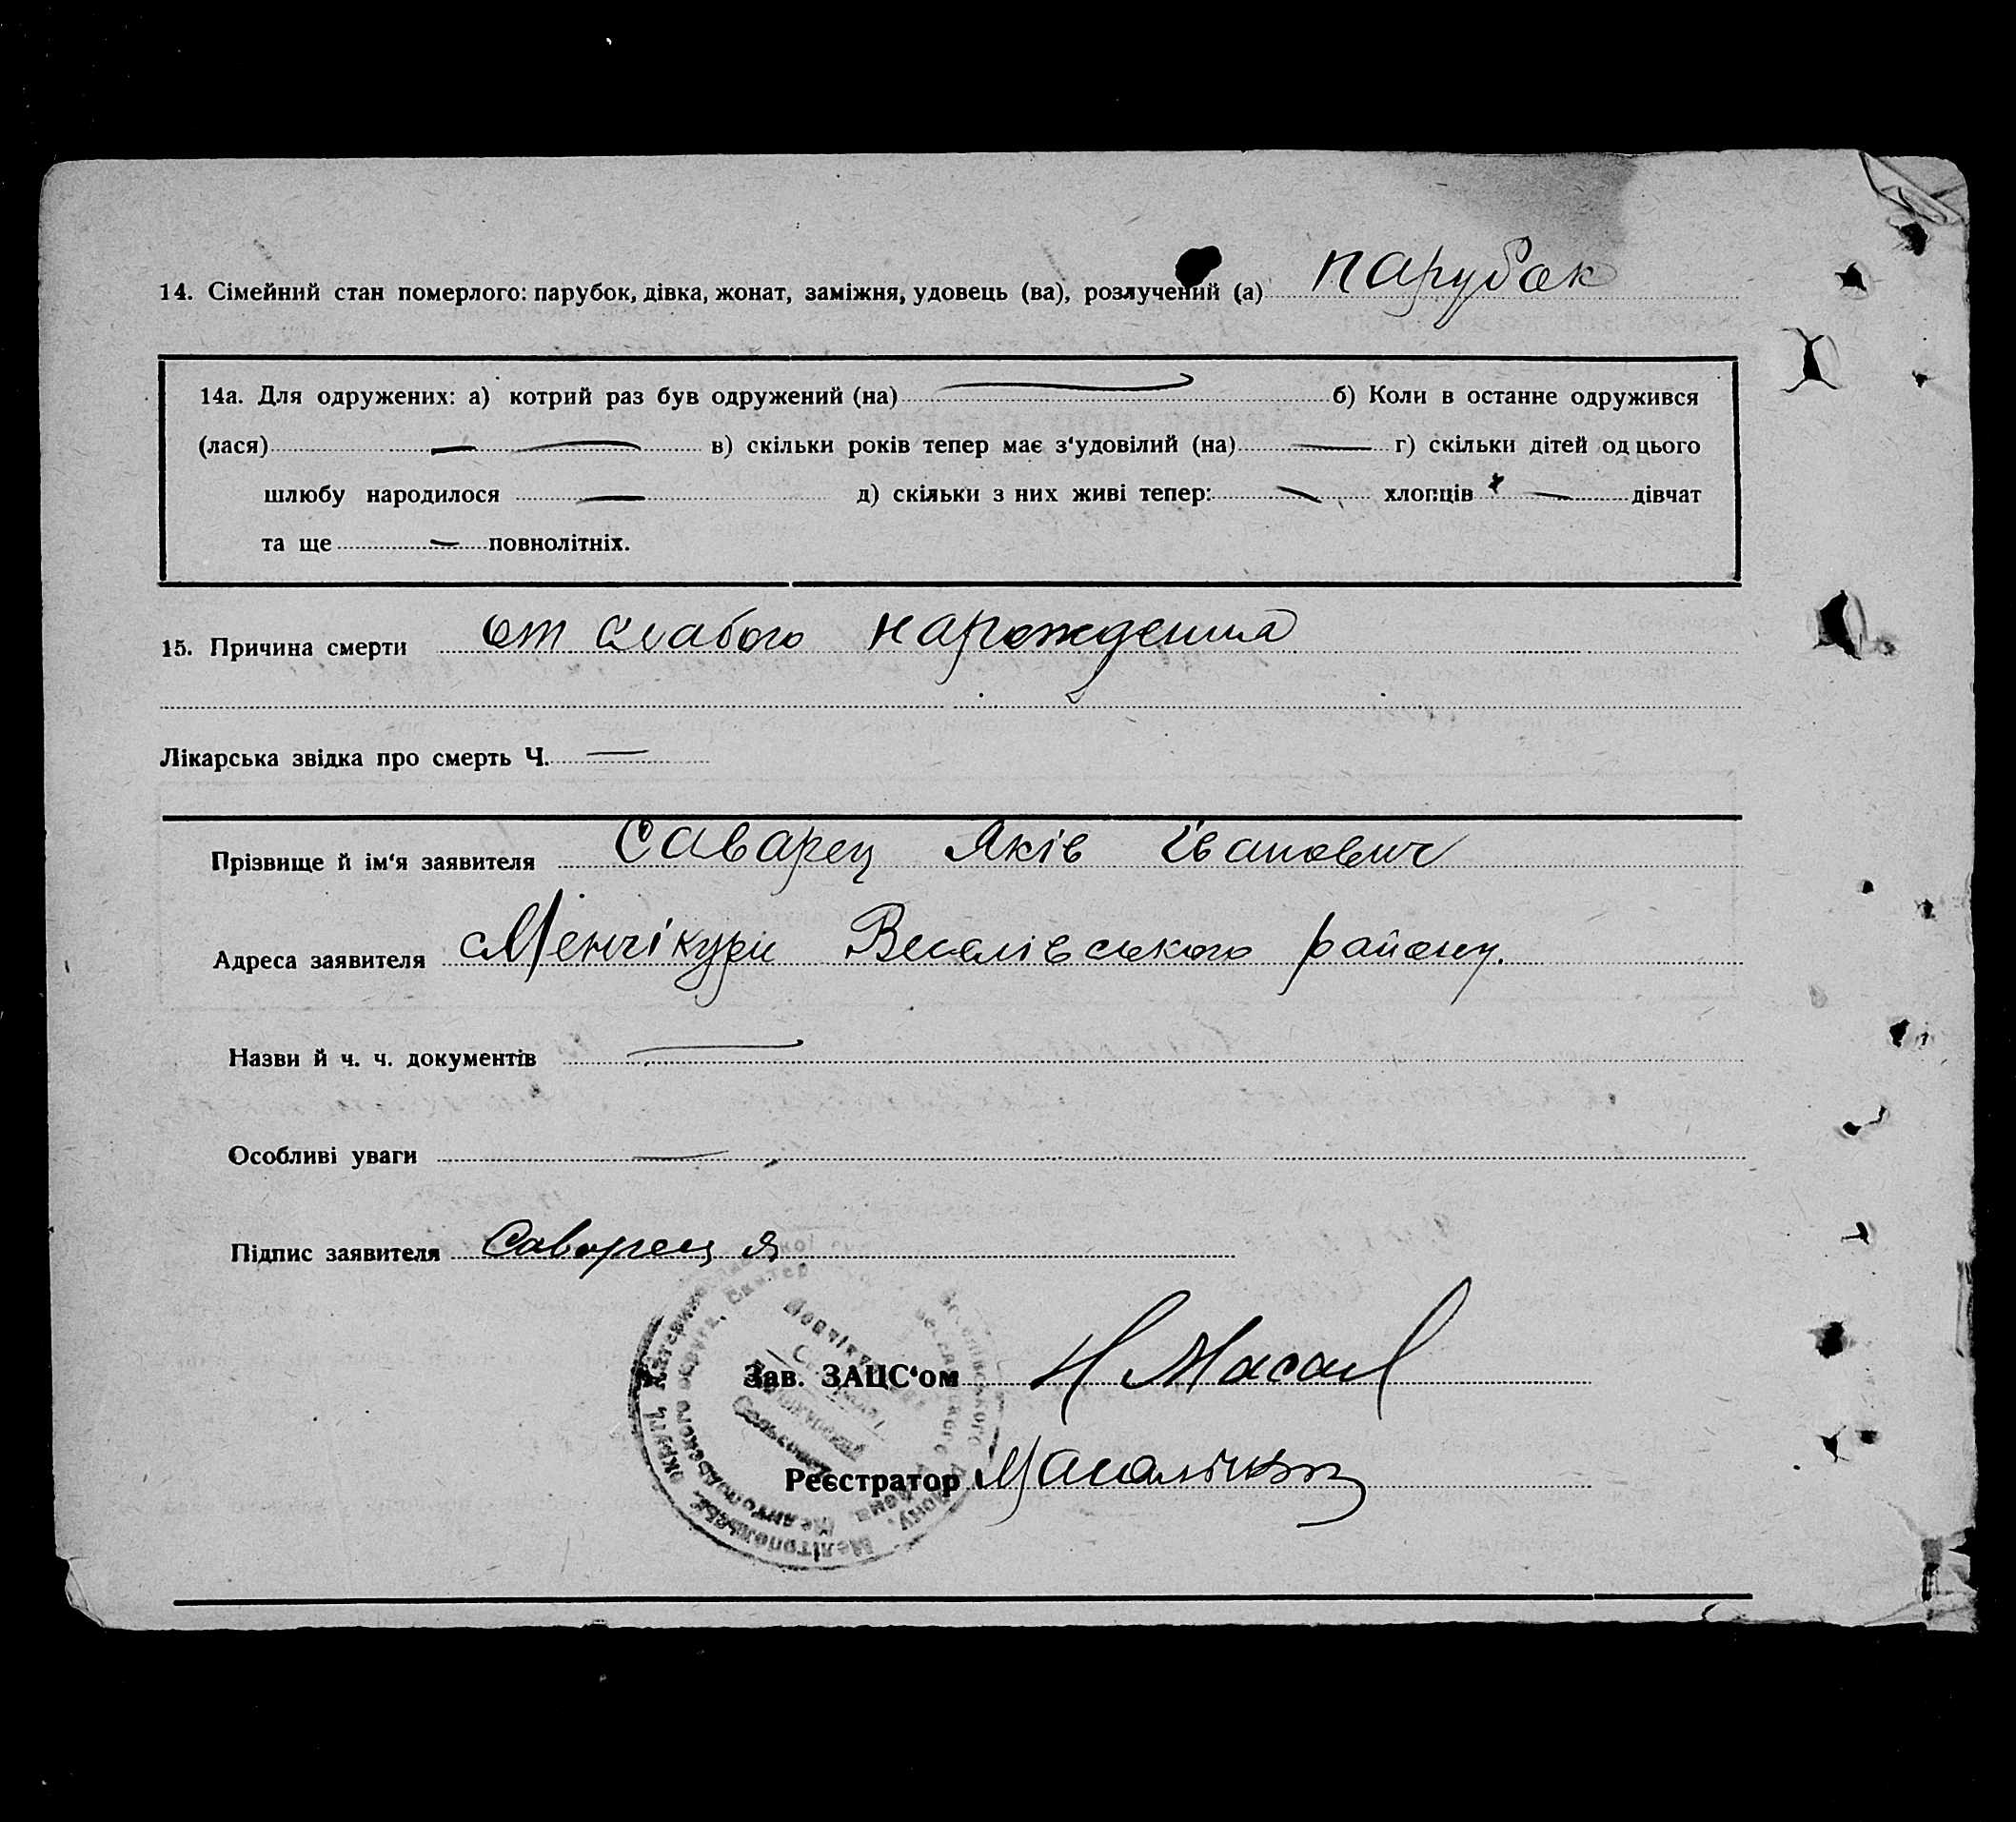 14. Сімейний стан померлого: парубок, дівка, жонат, заміжня, удовець (ва), розлучений (а) парубок
14а. Для одружених: а) котрий раз був одружений (на) б) Коли в останне одружився
(лася) в) скільки років тепер має з'удовілий (на) г) скільки дітей од цього
шлюбу народилося д) скільки з них живі тепер: хлопців дівчат
та ще повнолітніх.
15. Причина смерти от слабого нарождения
Лікарська звідка про смерть Ч.
Прізвище й ім'я заявителя Саварец Яків Іванович
Адреса заявителя с Менчікури Веселівського району.
Назви й ч. ч. документів
Особливі уваги
Підпис заявителя Саварец Я
Зав. ЗАЦС'ом
Реєстратор